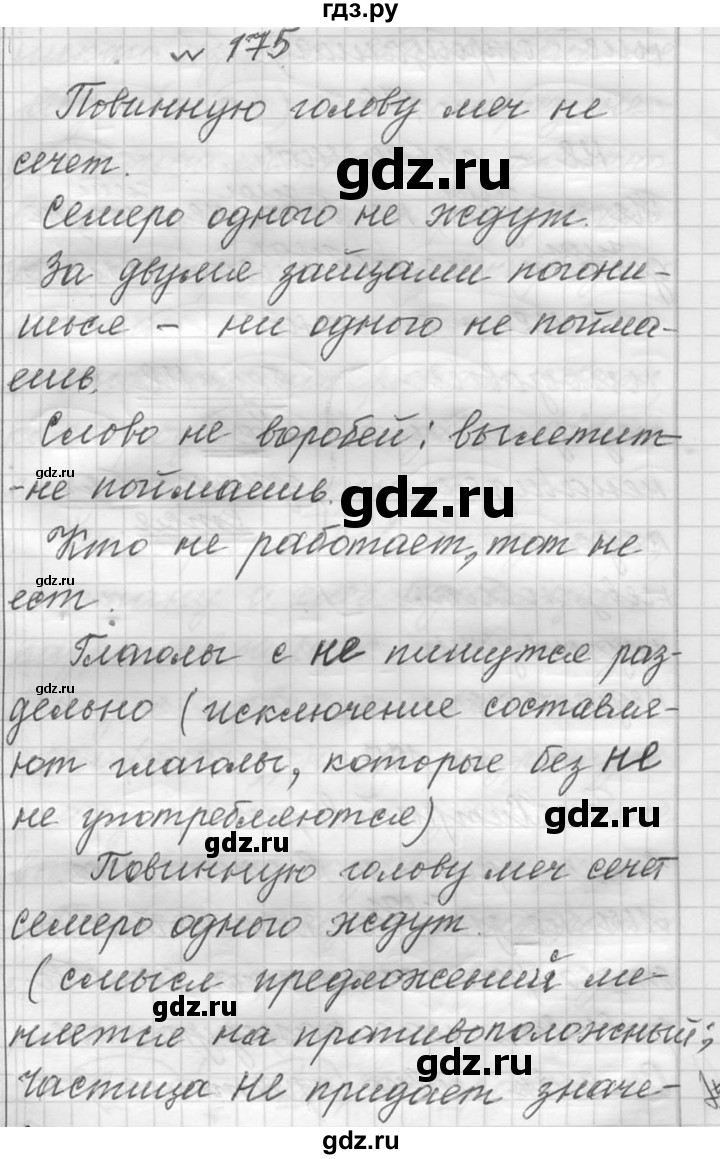 гдз.ру
№ 175
Повинную голову меч не
сечет.
gdz.ru
Семеро одного не ждут.
gdz.ru
За двумя зайцами погони-
шься - ни одного не пойма-
ешь.
Слово не воробей: вылетит
gdz.ru
-не поймаешь.
gdz.ru
Кто не работает, тот не
gdz.ru
ест.
Глаголы с не пишутся раз-
gdz.ru
дельно (исключение составля-
ют глаголы, которые без не
не употребляются)
gdz.ru
gdz.ru
Повинную голову меч сечет
Семеро одного ждут.
(смысл предложений ме-
gdz.ru
няется на противоположный;
gdz.ru
Частица не придает значе-
gdz.ru